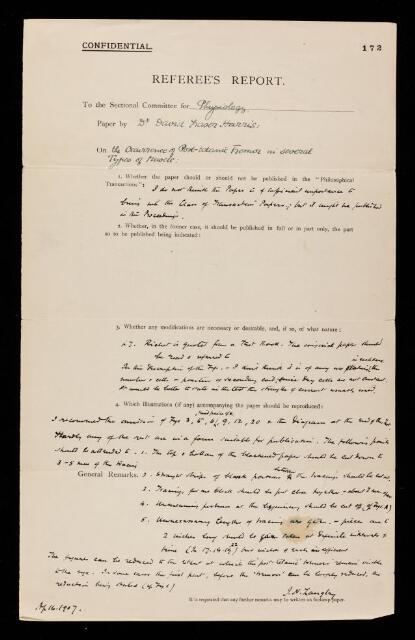 CONFIDENTIAL.
172
REFEREE'S REPORT.
To the Sectional Committee for Physiology
Paper by Dr David Fraser Harris:
On the Occurrence of Post-tetanic Tremor in several
Types of Muscle:
1. Whether the paper should or should not be published in the "Philosophical
Transactions":
I do not think the Paper is of sufficient importance to
bring into the Class of Transactions Papers; but it might be published
in the Proceedings.
2. Whether, in the former case, it should be published in full or in part only, the part
so to be published being indicated:
3. Whether any modifications are necessary or desirable, and, if so, of what nature:
Richet is quoted from a Text Book. The original paper should
be read & referred to
In the description of the Figs. I don't think it is of any use
number of cells & position of secondary coil, since Dry cells are not constant.
It would be better to state in the text the strength of current usually used.
4. Which illustrations (if any) accompanying the paper should be reproduced:
I recommend the omission of Figs 3, 5, 6, 9, 12, 20 & the Diagram at the
Hardly any of the rest are in a form suitable for publication. The following points
should be attended to. 1. The top & bottom of the blackened paper should be cut down to
3-5 mm of the tracing
General Remarks. 2. Straight strips of black between the tracings should be
3. Tracings, for one block should be put close together - about 2 mm
4. Unnecessary portions at the beginning should be cut off
5. Unnecessary lengths of tracing are given - piece and
2 inches long should be
time (17.18.19) but inches of each is sufficient
The figures can be reduced to the extent at which the post tetanic tremor remains visible
to the eye. In some cases the first part, before the 'tremor' can be largely reduced, the
reduction being stated
J. N. Langley
It is requested that any further remarks may be written on foolscap paper.
Ap. 16. 1907.